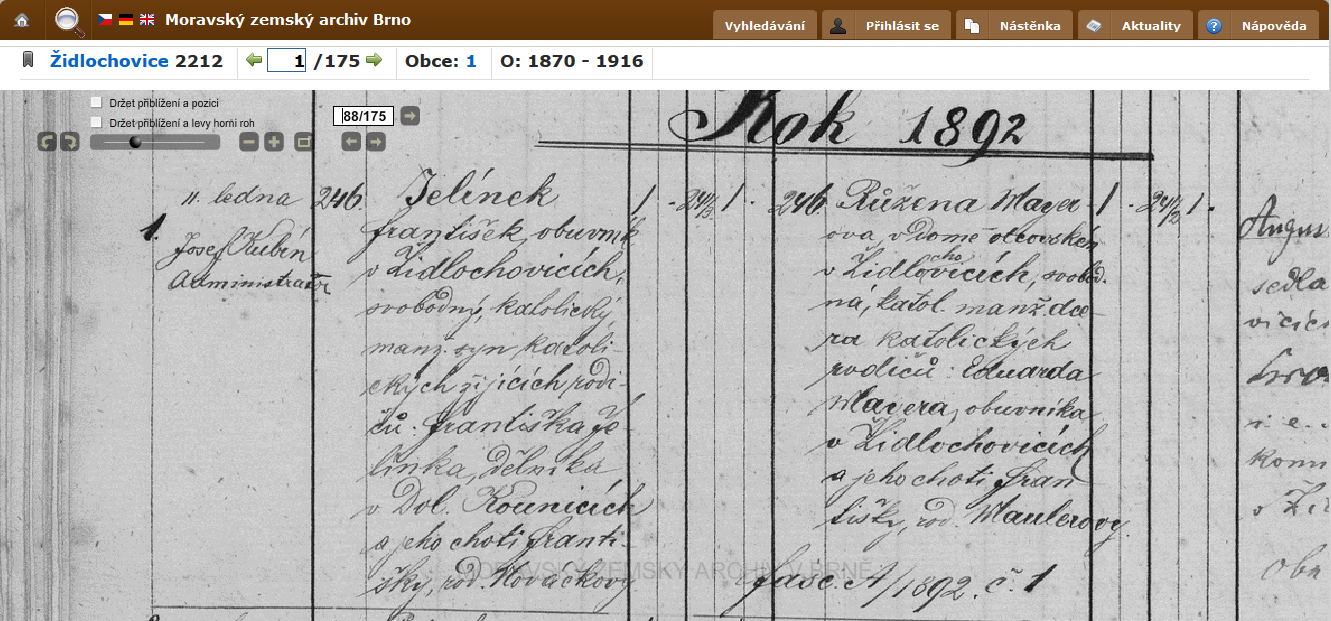 Moravský zemský archiv Brno
Vyhledávání
Přihlásit se
Nástěnka
Aktuality
Nápověda
Židlochovice 2212
1 /175
Obce: 1
O: 1870 - 1916
Držet přiblížení a pozici
Držet přiblížení a levy horni roh
88/175
Rok 1892
1.
11. ledna
Josef Kubín
Administrátor
246.
Jelínek
František obuvník
v Židlochovicích,
svobodný, katolický
manž. syn katoli-
ckých žijících rodi-
čů: Františka Je-
línka, dělníka
v Dol. Kounicích
a jeho choti Franti-
šky, rod. Nováčkovy
1
24/3
1
246
Růžena Mayer-
ova, v domě otcovském
v Židlochovicích, svobod-
ná, katol. manž. dce-
ra katolických
rodičů: Eduarda
Mayera, obuvníka
v Židlochovicích
a jeho choti Fran
tišky, rod. Maulerovy.
fasc. A/1892. č. 1
1
24 1/2
1
Augus
sedla
vicích
n. e.
MORAVSKÝ ZEMSKÝ ARCHIV V BRNĚ